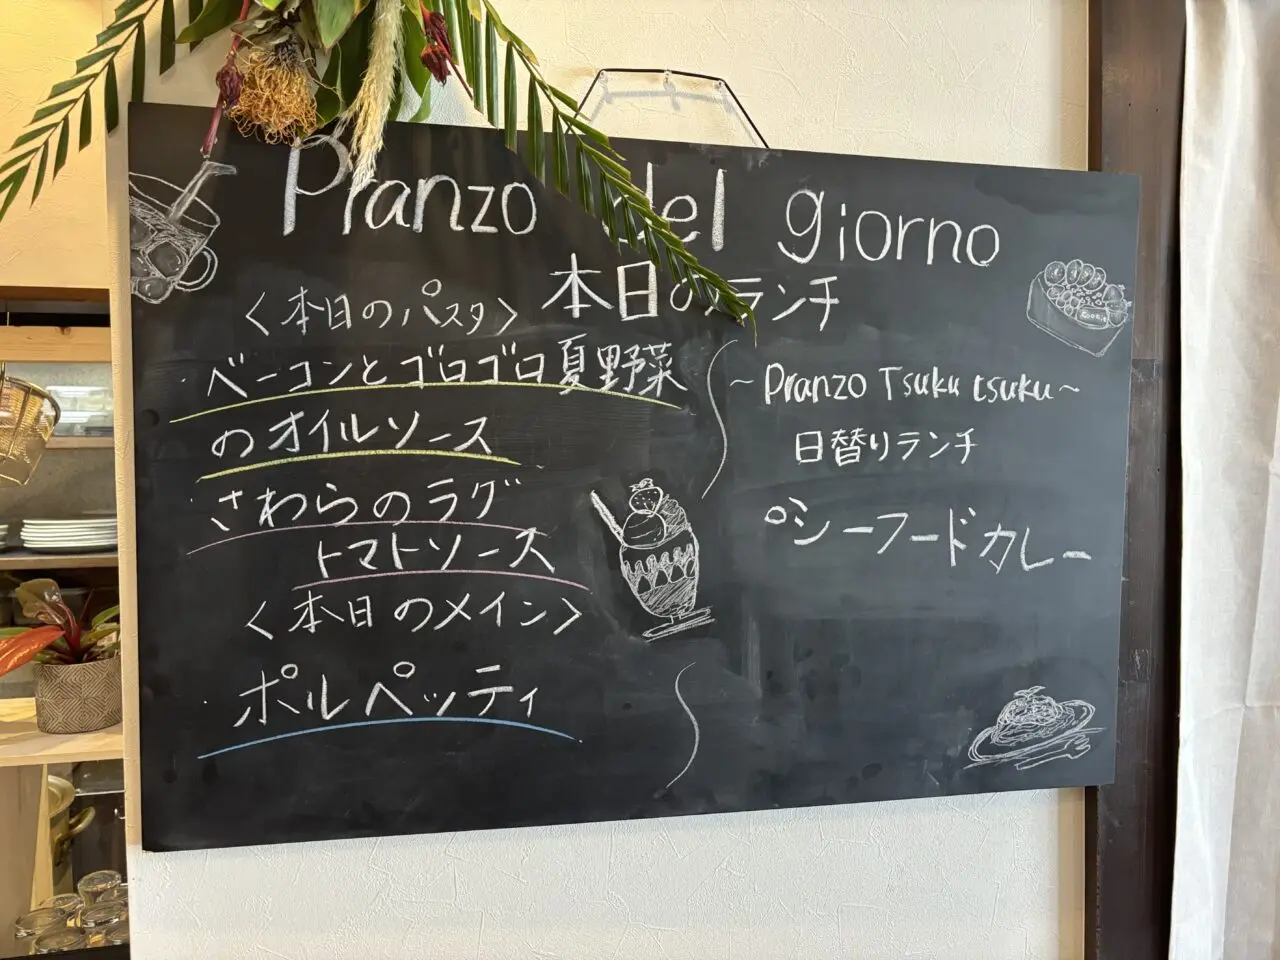 Pranzo del giorno
本日のランチ
〈本日のパスタ〉
・ベーコンとゴロゴロ夏野菜
のオイルソース
・さわらのラグー
トマトソース
〈本日のメイン〉
・ポルペッティ
~ Pranzo Tsuku tsuku ~
日替りランチ
○シーフードカレー